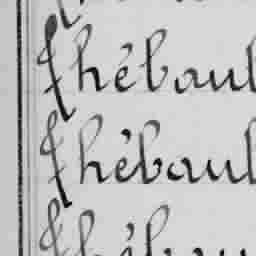 Thébaul
Thébaul